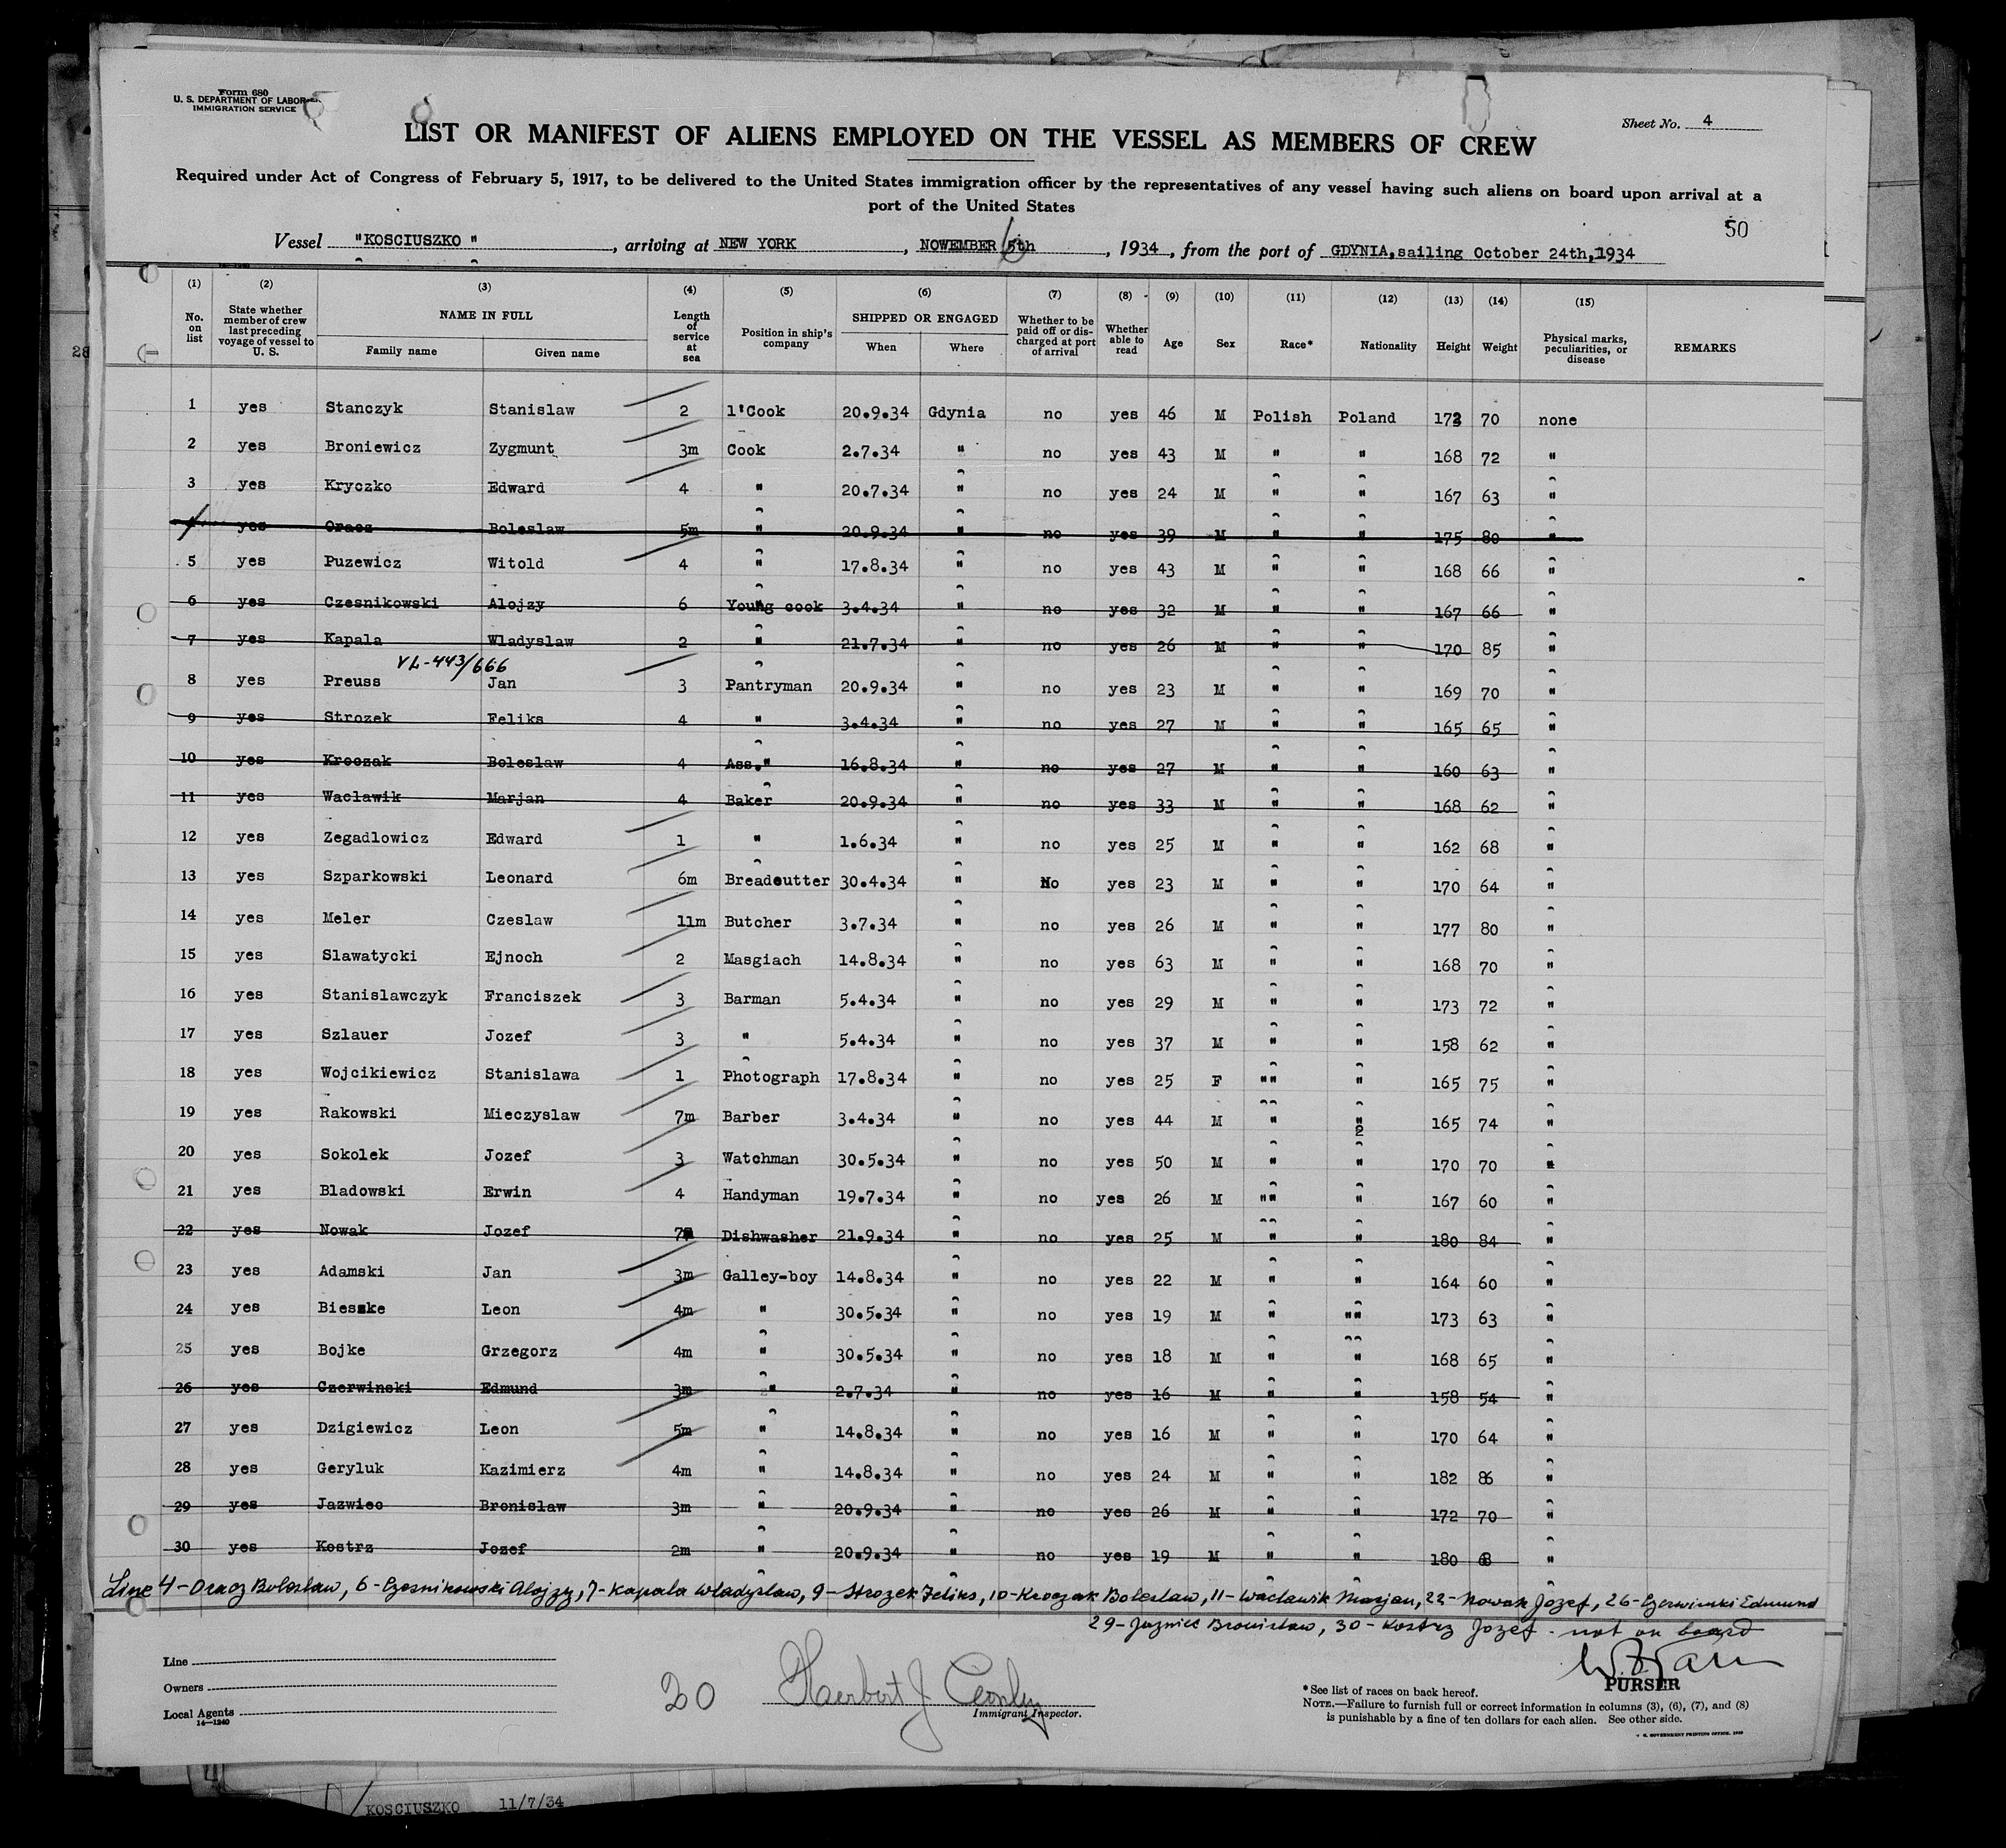 Form 680
U. S. DEPARTMENT OF LABOR
IMMIGRATION SERVICE
Sheet No. 4
LIST OR MANIFEST OF ALIENS EMPLOYED ON THE VESSEL AS MEMBERS OF CREW
Required under Act of Congress of February 5, 1917, to be delivered to the United States immigration officer by the representatives of any vessel having such aliens on board upon arrival at a
port of the United States
50
Vessel "KOSCIUSZKO", arriving at NEW YORK, NOWEMBER 5th, 1934, from the port of GDYNIA, sailing October 24th, 1934
(1) (2) (3) (4) (5) (6) (7) (8) (9) (10) (11) (12) (13) (14) (15)
No. on list State whether member of crew last preceding voyage of vessel to U. S. NAME IN FULL Family name Given name Length of service at sea Position in ship's company SHIPPED OR ENGAGED When Where Whether to be paid off or discharged at port of arrival Whether able to read Age Sex Race* Nationality Height Weight Physical marks, peculiarities, or disease REMARKS
1 yes Stanczyk Stanislaw 2 1'Cook 20.9.34 Gdynia no yes 46 M Polish Poland 173 70 none
2 yes Broniewicz Zygmunt 3m Cook 2.7.34 " no yes 43 M " " 168 72 "
3 yes Kryczko Edward 4 " 20.7.34 " no yes 24 M " " 167 63 "
4 yes Oracz Boleslaw 5m " 20.9.34 " no yes 39 M " " 175 80 "
5 yes Puzewicz Witold 4 " 17.8.34 " no yes 43 M " " 168 66 "
6 yes Czesnikowski Alojzy 6 Young cook 3.4.34 " no yes 32 M " " 167 66 "
7 yes Kapala Wladyslaw 2 " 21.7.34 " no yes 26 M " " 170 85 "
VL-443/666
8 yes Preuss Jan 3 Pantryman 20.9.34 " no yes 23 M " " 169 70 "
9 yes Strozek Feliks 4 " 3.4.34 " no yes 27 M " " 165 65 "
10 yes Kroczak Boleslaw 4 Ass." 16.8.34 " no yes 27 M " " 160 63 "
11 yes Waclawik Marjan 4 Baker 20.9.34 " no yes 33 M " " 168 62 "
12 yes Zegadlowicz Edward 1 " 1.6.34 " no yes 25 M " " 162 68 "
13 yes Szparkowski Leonard 6m Breadcutter 30.4.34 " No yes 23 M " " 170 64 "
14 yes Meler Czeslaw 11m Butcher 3.7.34 " no yes 26 M " " 177 80 "
15 yes Slawatycki Ejnoch 2 Masgiach 14.8.34 " no yes 63 M " " 168 70 "
16 yes Stanislawczyk Franciszek 3 Barman 5.4.34 " no yes 29 M " " 173 72 "
17 yes Szlauer Jozef 3 " 5.4.34 " no yes 37 M " " 158 62 "
18 yes Wojcikiewicz Stanislawa 1 Photograph 17.8.34 " no yes 25 F "" " 165 75 "
19 yes Rakowski Mieczyslaw 7m Barber 3.4.34 " no yes 44 M " " 165 74 "
20 yes Sokolek Jozef 3 Watchman 30.5.34 " no yes 50 M " " 170 70 "
21 yes Bladowski Erwin 4 Handyman 19.7.34 " no yes 26 M "" " 167 60 "
22 yes Nowak Jozef 7 Dishwasher 21.9.34 " no yes 25 M " " 180 84 "
23 yes Adamski Jan 3m Galley-boy 14.8.34 " no yes 22 M " " 164 60 "
24 yes Bieszke Leon 4m " 30.5.34 " no yes 19 M " "" 173 63 "
25 yes Bojke Grzegorz 4m " 30.5.34 " no yes 18 M " " 168 65 "
26 yes Czerwinski Edmund 3m " 2.7.34 " no yes 16 M " " 158 54 "
27 yes Dzigiewicz Leon 5m " 14.8.34 " no yes 16 M " " 170 64 "
28 yes Geryluk Kazimierz 4m " 14.8.34 " no yes 24 M " " 182 86 "
29 yes Jazwiec Bronislaw 3m " 20.9.34 " no yes 26 M " " 172 70 "
30 yes Kostrz Jozef 2m " 20.9.34 " no yes 19 M " " 180 68 "
Line 4-Oracz Boleslaw, 6-Czesnikowski Alojzy, 7-Kapala Wladyslaw, 9-Strozek Feliks, 10-Kroczak Boleslaw, 11-Waclawik Marjan, 22-Nowak Jozef, 26-Czerwinski Edmund
29-Jazwiec Bronislaw, 30-Kostrz Jozef - not on board
Line
Owners
Local Agents
14—1240
20
Herbert J
Immigrant Inspector.
PURSER
* See list of races on back hereof.
NOTE.—Failure to furnish full or correct information in columns (3), (6), (7), and (8)
is punishable by a fine of ten dollars for each alien. See other side.
KOSCIUSZKO 11/7/34
28